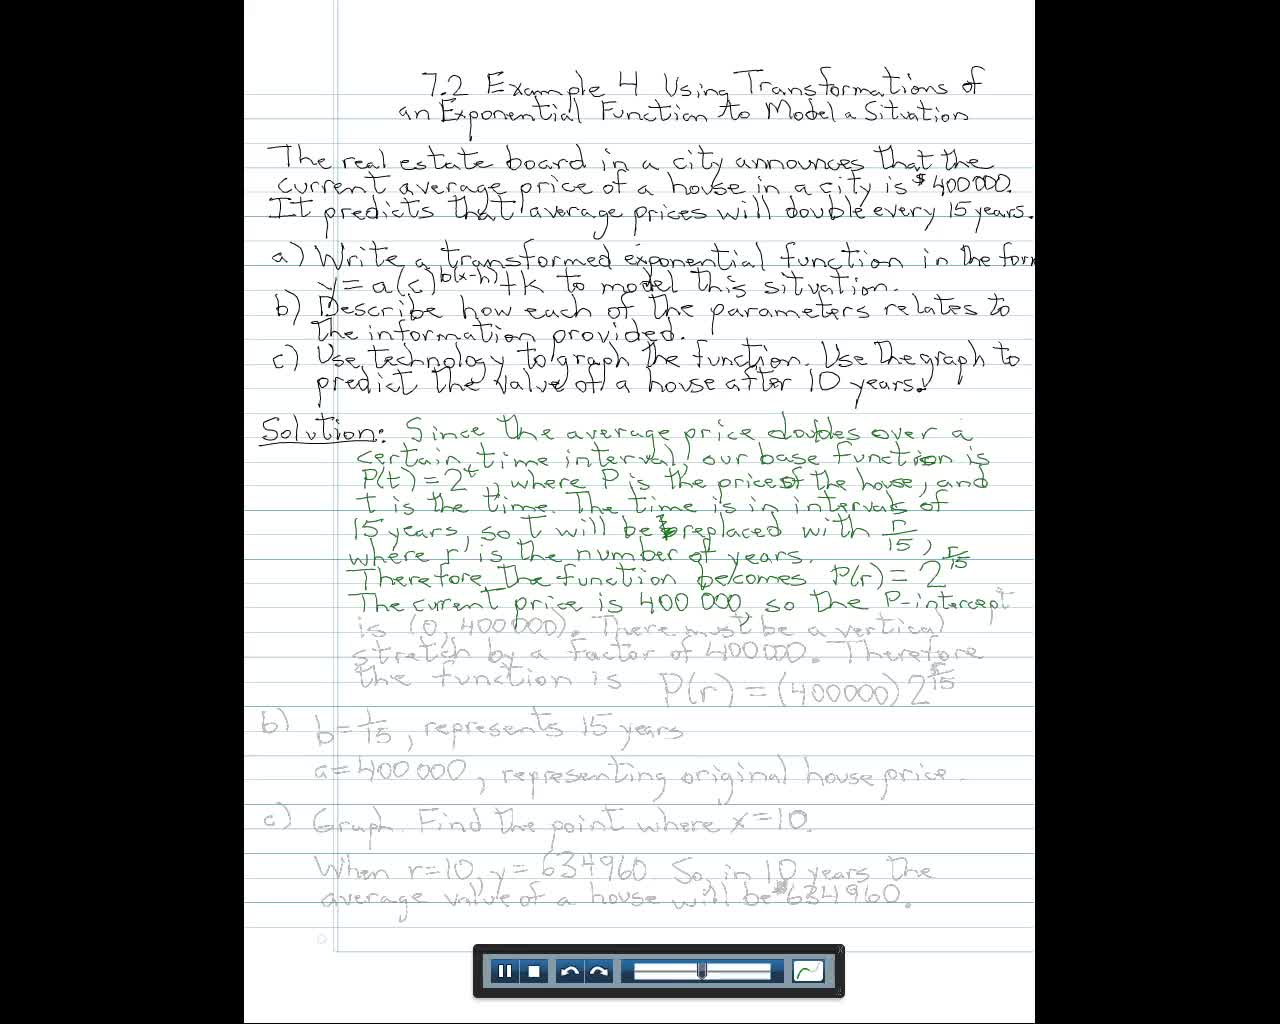 7.2 Example 4 Using Transformations of
an Exponential Function to Model a Situation
The real estate board in a city announces that the
current average price of a house in a city is $400000.
It predicts that average prices will double every 15 years.
a) Write a transformed exponential function in the form
y = a(c)^b(x-h) + k to model this situation.
b) Describe how each of the parameters relates to
the information provided.
c) Use technology to graph the function. Use the graph to
predict the value of a house after 10 years.
Solution: Since the average price doubles over a
certain time interval, our base function is
P(t) = 2^t, where P is the price of the house, and
t is the time. The time is in intervals of
15 years, so t will be replaced with r/15,
where r is the number of years.
Therefore the function becomes P(r) = 2^r/15
The current price is 400 000, so the P-intercept
is (0, 400 000). There must be a vertical
stretch by a factor of 400000. Therefore
the function is P(r) = (400000) 2^r/15
b) b = 1/15, represents 15 years
a = 400 000, representing original house price.
c) Graph. Find the point where x = 10.
When r = 10, y = 634960. So, in 10 years the
average value of a house will be $634960.